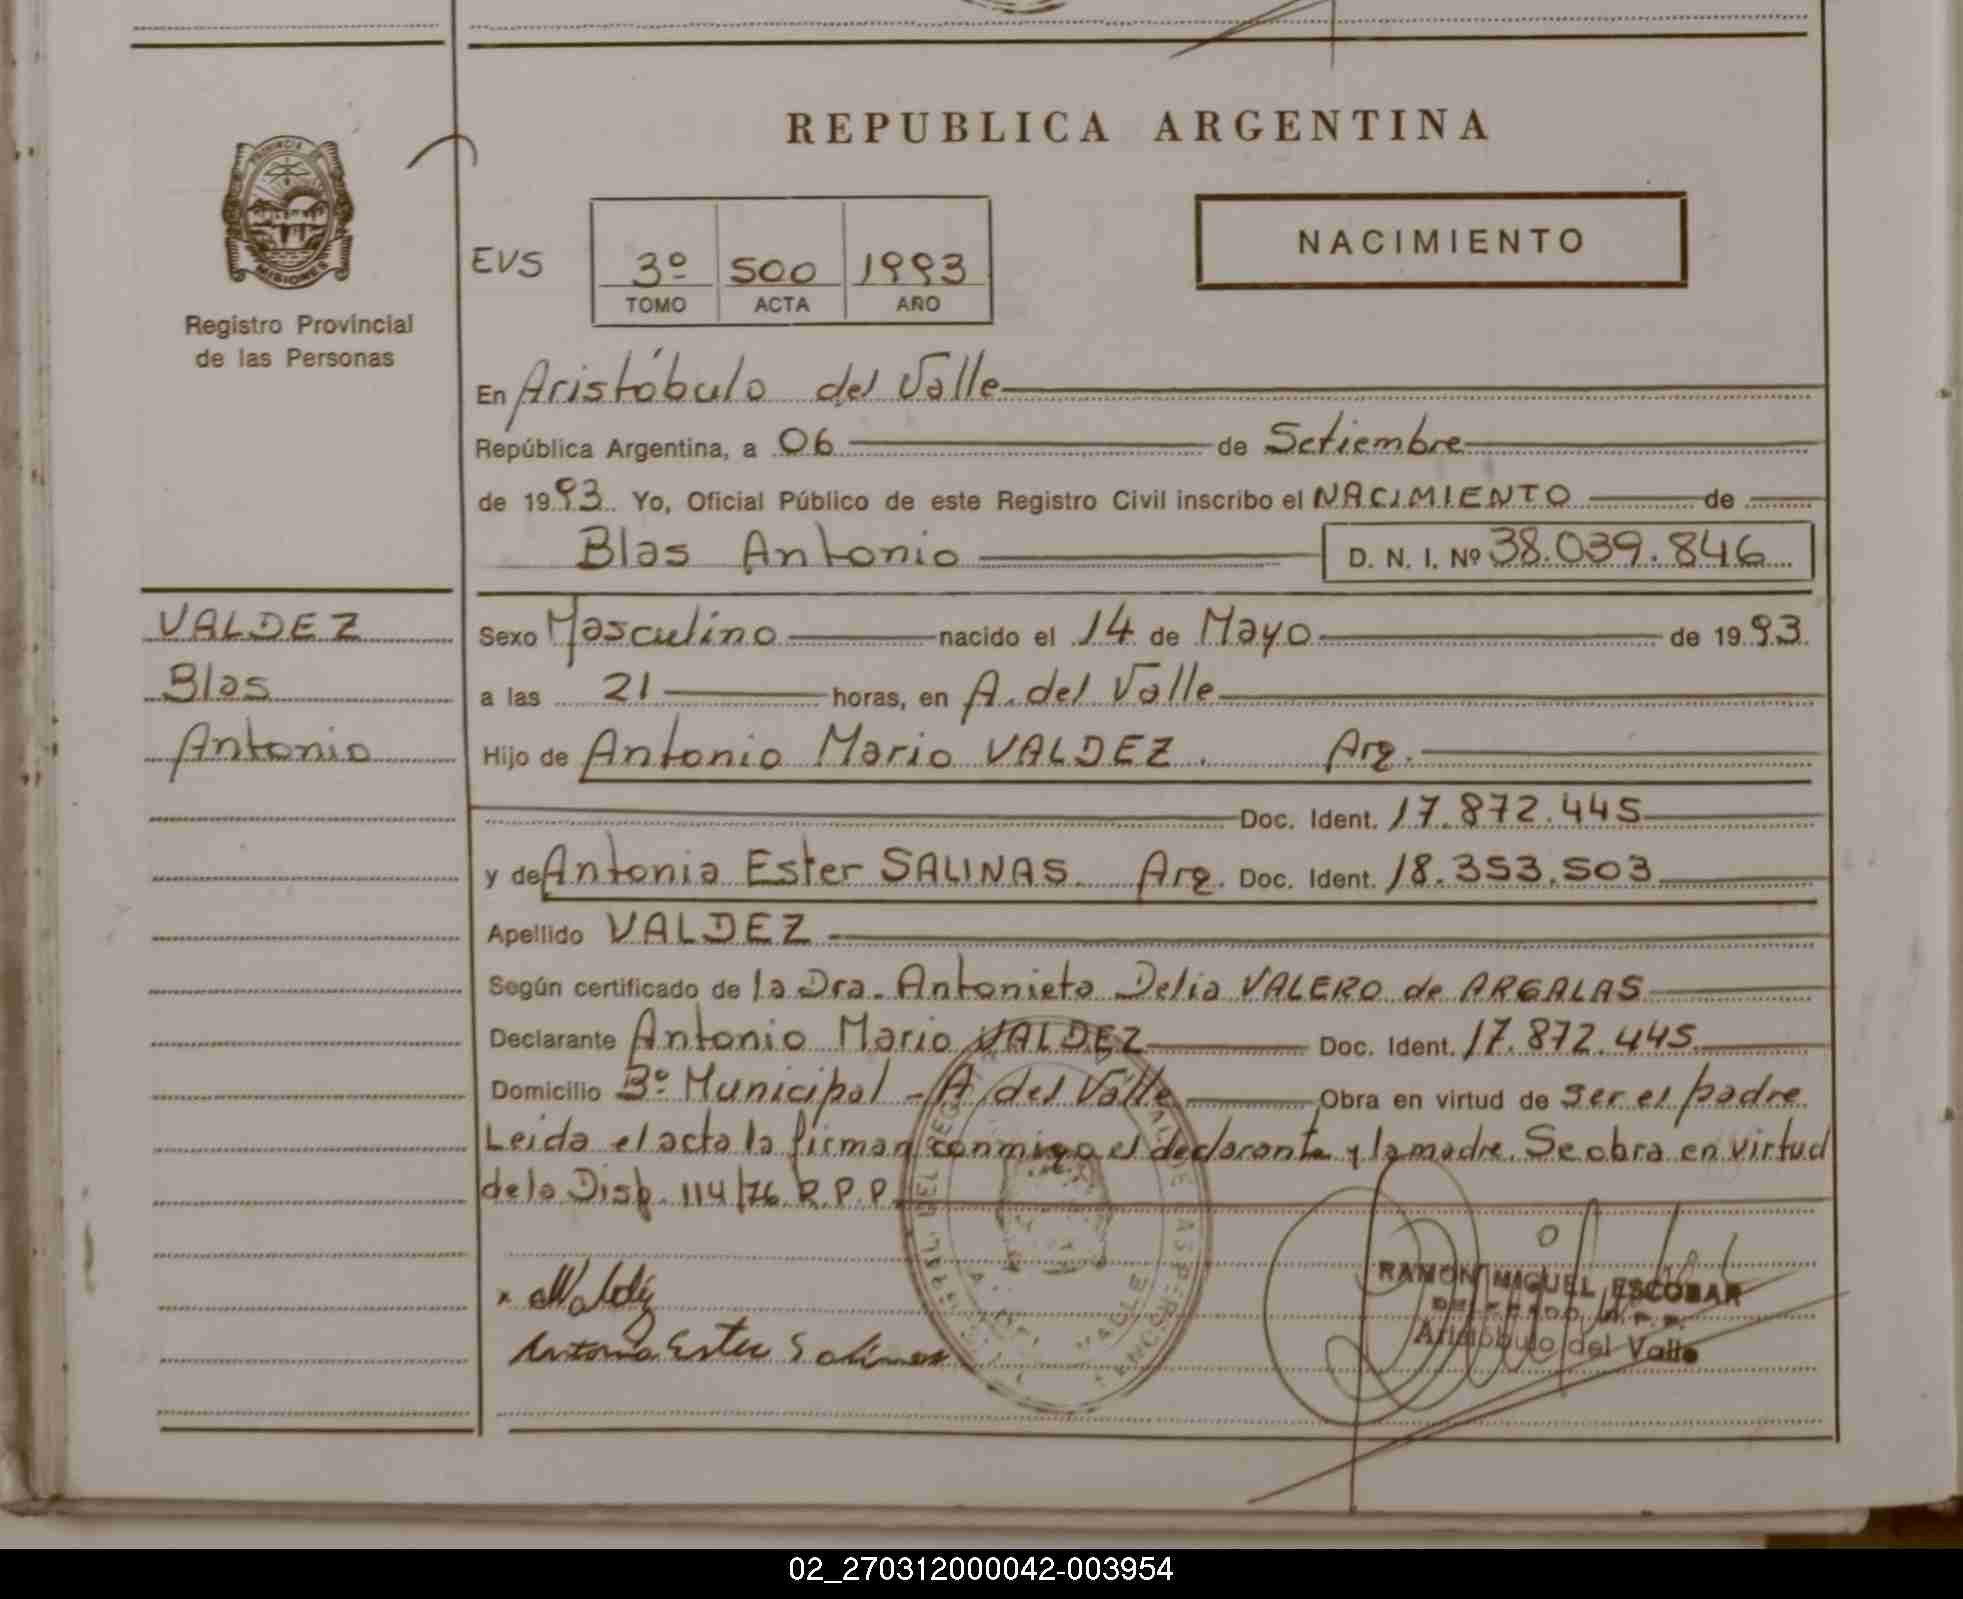 REPUBLICA ARGENTINA
PROVINCIA DE
MISIONES
Registro Provincial
de las Personas
NACIMIENTO
EVS
3º 500 1993
TOMO ACTA AÑO
En Aristóbulo del Valle
República Argentina, a 06 de Setiembre
de 1993. Yo, Oficial Público de este Registro Civil inscribo el NACIMIENTO de
Blas Antonio D. N. I. Nº 38.039.846
VALDEZ
Blas
Antonio
Sexo Masculino nacido el 14 de Mayo de 1993.
a las 21 horas, en A. del Valle
Hijo de Antonio Mario VALDEZ. Arg.
Doc. Ident. 17.872.445
y de Antonia Ester SALINAS. Arg. Doc. Ident. 18.353.503
Apellido VALDEZ
Según certificado de la Dra. Antonieta Delia VALERO de ARGALAS
Declarante Antonio Mario VALDEZ Doc. Ident. 17.872.445
Domicilio Bº Municipal - A. del Valle Obra en virtud de ser el padre
Leida el acta la firman conmigo el declarante y la madre. Se obra en virtud
de la Disp. 114/76 R.P.P.
Antonia Ester Salinas
RAMON MIGUEL ESCOBAR
Aristóbulo del Valle
02_270312000042-003954